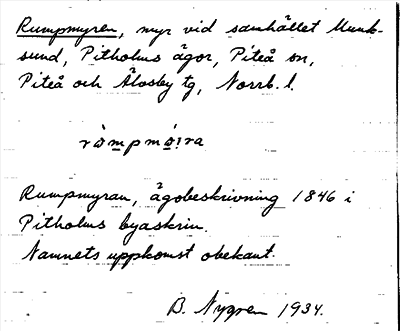 Rumpmyren, myr vid samhället Munk-
sund, Pitholms ägor, Piteå sn,
Piteå och Älvsby tg, Norrb. l.
ròmpmø̀ra
Rumpmyran, ägobeskrivning 1846 i
Pitholms byaskrin.
Namnets uppkomst obekant.
B. Nygren 1934.